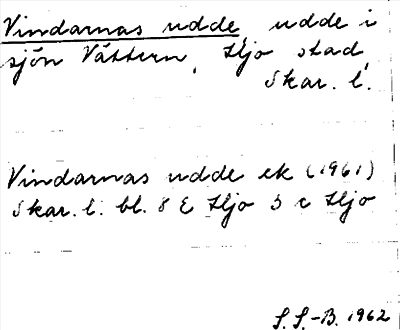 Vindarnas udde, udde i
sjön Vättern, Hjo stad,
Skar. l.
Vindarnas udde ek (1961)
Skar. l. bl. 8 E Hjo 5 c Hjo
S. S.-B. 1962